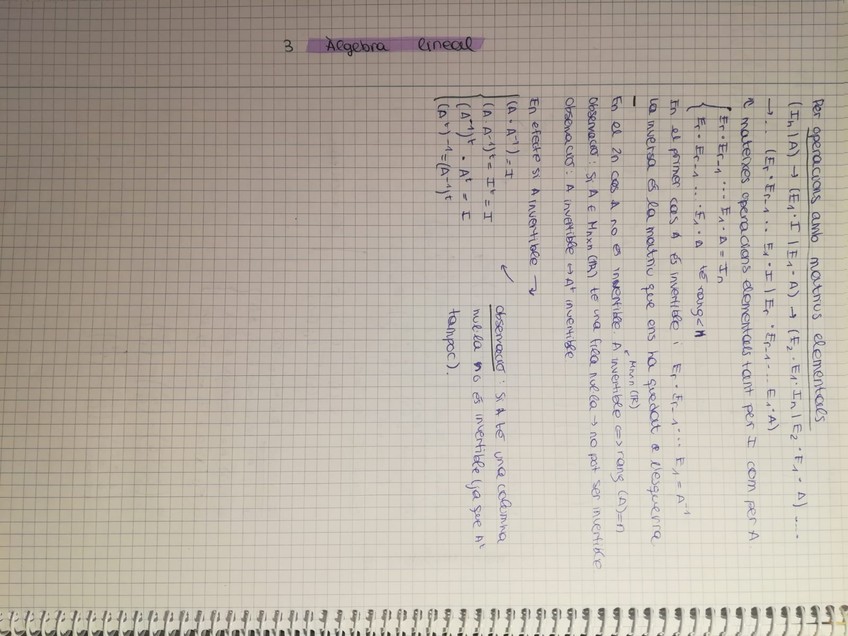 3 Àlgebra lineal
Per operacions amb matrius elementals
(In | A) → (E1 · I | E1 · A) → (E2 · E1 · In | E2 · E1 · A) ...
→ ... (Er · Er-1 ... E1 · I | Er · Er-1 ... E1 · A)
↖ mateixes operacions elementals tant per I com per A
{ Er · Er-1 ... E1 · A = In
Er · Er-1 ... E1 · A té rang < n
En el primer cas A és invertible i Er · Er-1 ... E1 = A⁻¹
La inversa és la matriu que ens ha quedat a l'esquerra
– En el 2n cas A no és invertible. A invertible ⟺ rang (A) = n
∈ Mnxn (ℝ)
Observació: Si A ∈ Mnxn (ℝ) té una fila nul·la → no pot ser invertible
Observació: A invertible ↔ Aᵗ invertible
En efecte si A invertible →
{ (A · A⁻¹) = I
(A · A⁻¹)ᵗ = Iᵗ = I
(A⁻¹)ᵗ · Aᵗ = I
(Aᵗ)⁻¹ = (A⁻¹)ᵗ
↙
Observació: Si A té una columna
nul·la no és invertible (ja que Aᵗ
tampoc).